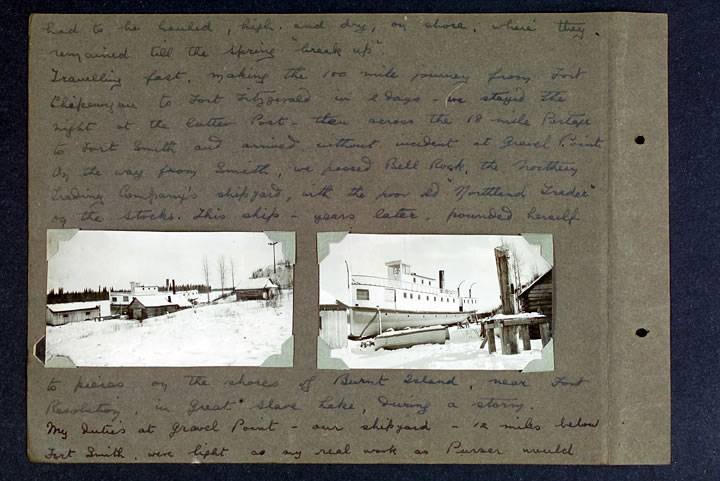 had to be hauled, high and dry, on shore, where they
remained till the Spring "break up".
Travelling fast, making the 100 mile journey from Fort
Chipewyan to Fort Fitzgerald in 2 days - we stayed the
night at the latter Post - then across the 18 mile Portage
to Fort Smith and arrived without incident at Gravel Point.
On the way from Smith, we passed Bell Rock, the Northern
Trading Company's shipyard, with the poor old "Northland Trader"
on the stocks. This ship - years later, pounded herself
to pieces on the shores of Burnt Island, near Fort
Resolution in Great Slave Lake, during a storm.
My duties at Gravel Point - our shipyard - 12 miles below
Fort Smith, were light as my real work as Purser would